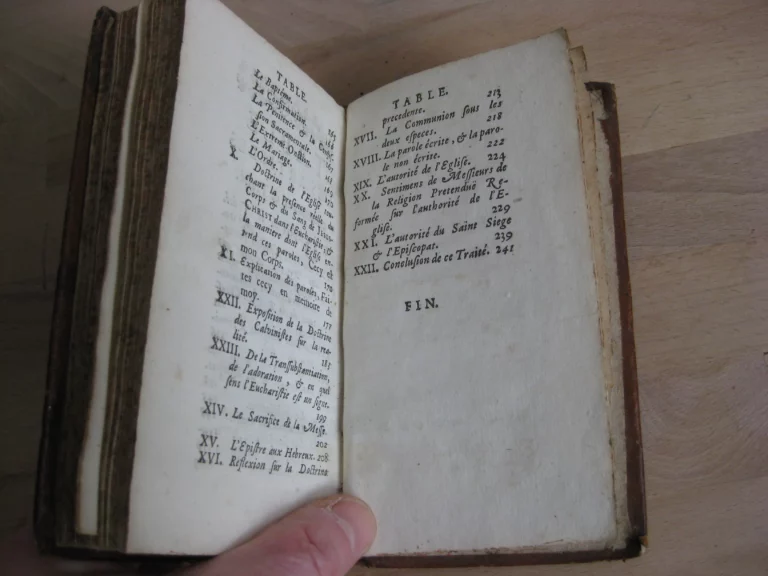 TABLE.
Le Baptême.
La Confirmation. 165
La Penitence & la
sion Sacramentale.
L'Extreme Onction.
Le Mariage.
L'Ordre.
X. Doctrine de l'Eglise
chant la presence réelle du
Corps & du Sang de
CHRIST dans l'Eucharistie; &
la maniere dont l'Eglise en-
tend ces paroles, Cecy est
mon Corps. 170
XI. Explication des paroles, Fai-
tes cecy en memoire de
moy. 177
XXII. Exposition de la Doctrine
des Calvinistes sur la rea-
lité. 183
XXIII. De la Transsubstantiation,
de l'adoration, & en quel
sens l'Eucharistie est un signe.
199
XIV. Le Sacrifice de la Messe.
202
XV. L'Epistre aux Hebreux. 208
XVI. Reflexion sur la Doctrine
TABLE.
precedente. 213
XVII. La Communion sous les
deux especes. 218
XVIII. La parole écrite, & la paro-
le non écrite. 222
XIX. L'autorité de l'Eglise. 224
XX. Sentimens de Messieurs de
la Religion Pretenduë Re-
formée sur l'authorité de l'E-
glise. 229
XXI. L'autorité du Saint Siege
& l'Episcopat. 239
XXII. Conclusion de ce Traité. 241
FIN.